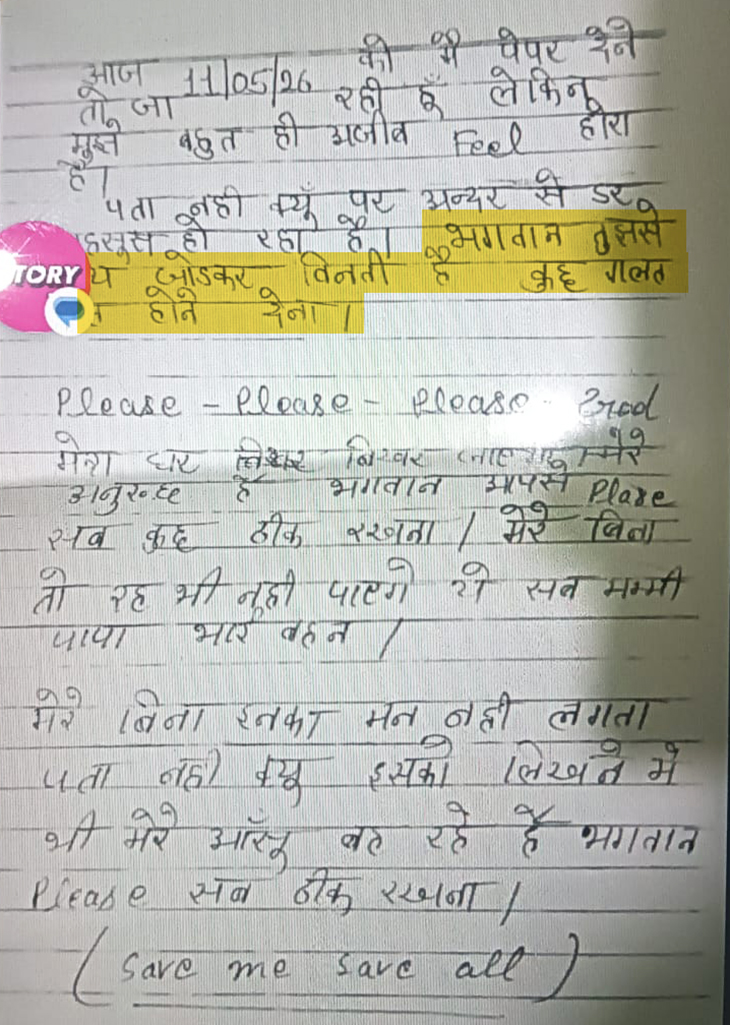 आज 11/05/26 को मैं पेपर देने
तो जा रही हूँ लेकिन
मुझे बहुत ही अजीब Feel होरा
है।
पता नही क्यूँ पर अन्दर से डर
हसूस हो रहा है। भगवान तुझसे
TORY थ जोडकर विनती है कुछ गलत
न होने देना।
Please - Please - Please God
मेरा घर बिखर जाएगा मेरे
अनुरूध्द है भगवान आपसे Plase
सब कुछ ठीक रखना। मेरे बिना
तो रह भी नही पाएगे ये सब मम्मी
पापा भाई बहन।
मेरे बिना इनका मन नही लगता
पता नही क्यू इसको लिखने मे
भी मेरे आँसू बह रहे हैं भगवान
Please सब ठीक रखना।
(Save me save all)